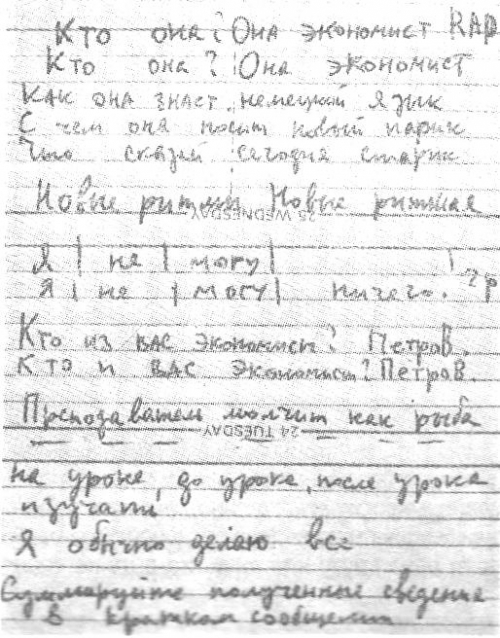 Кто она? Она экономист RAP
Кто она? Она экономист
Как она знает немецкий язык
С чем она носит новый парик
Что сказал сегодня старик
Новые ритмы Новые
25 WEDNESDAY
Я | не | могу |
Я | не | могу | ничего. 2р
Кто из вас экономист? Петров.
Кто и вас экономист? Петров.
Преподаватель молчит как рыба
24 TUESDAY
на уроке, до урока, после урока
изучати
Я обычно делаю все
Суммируйте полученные сведения
в кратком сообщении